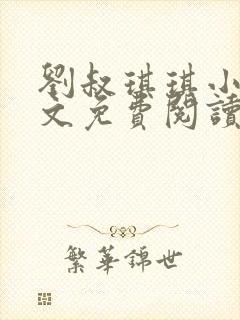 劉叔琪琪小
文免費閱讀
繁華錦世